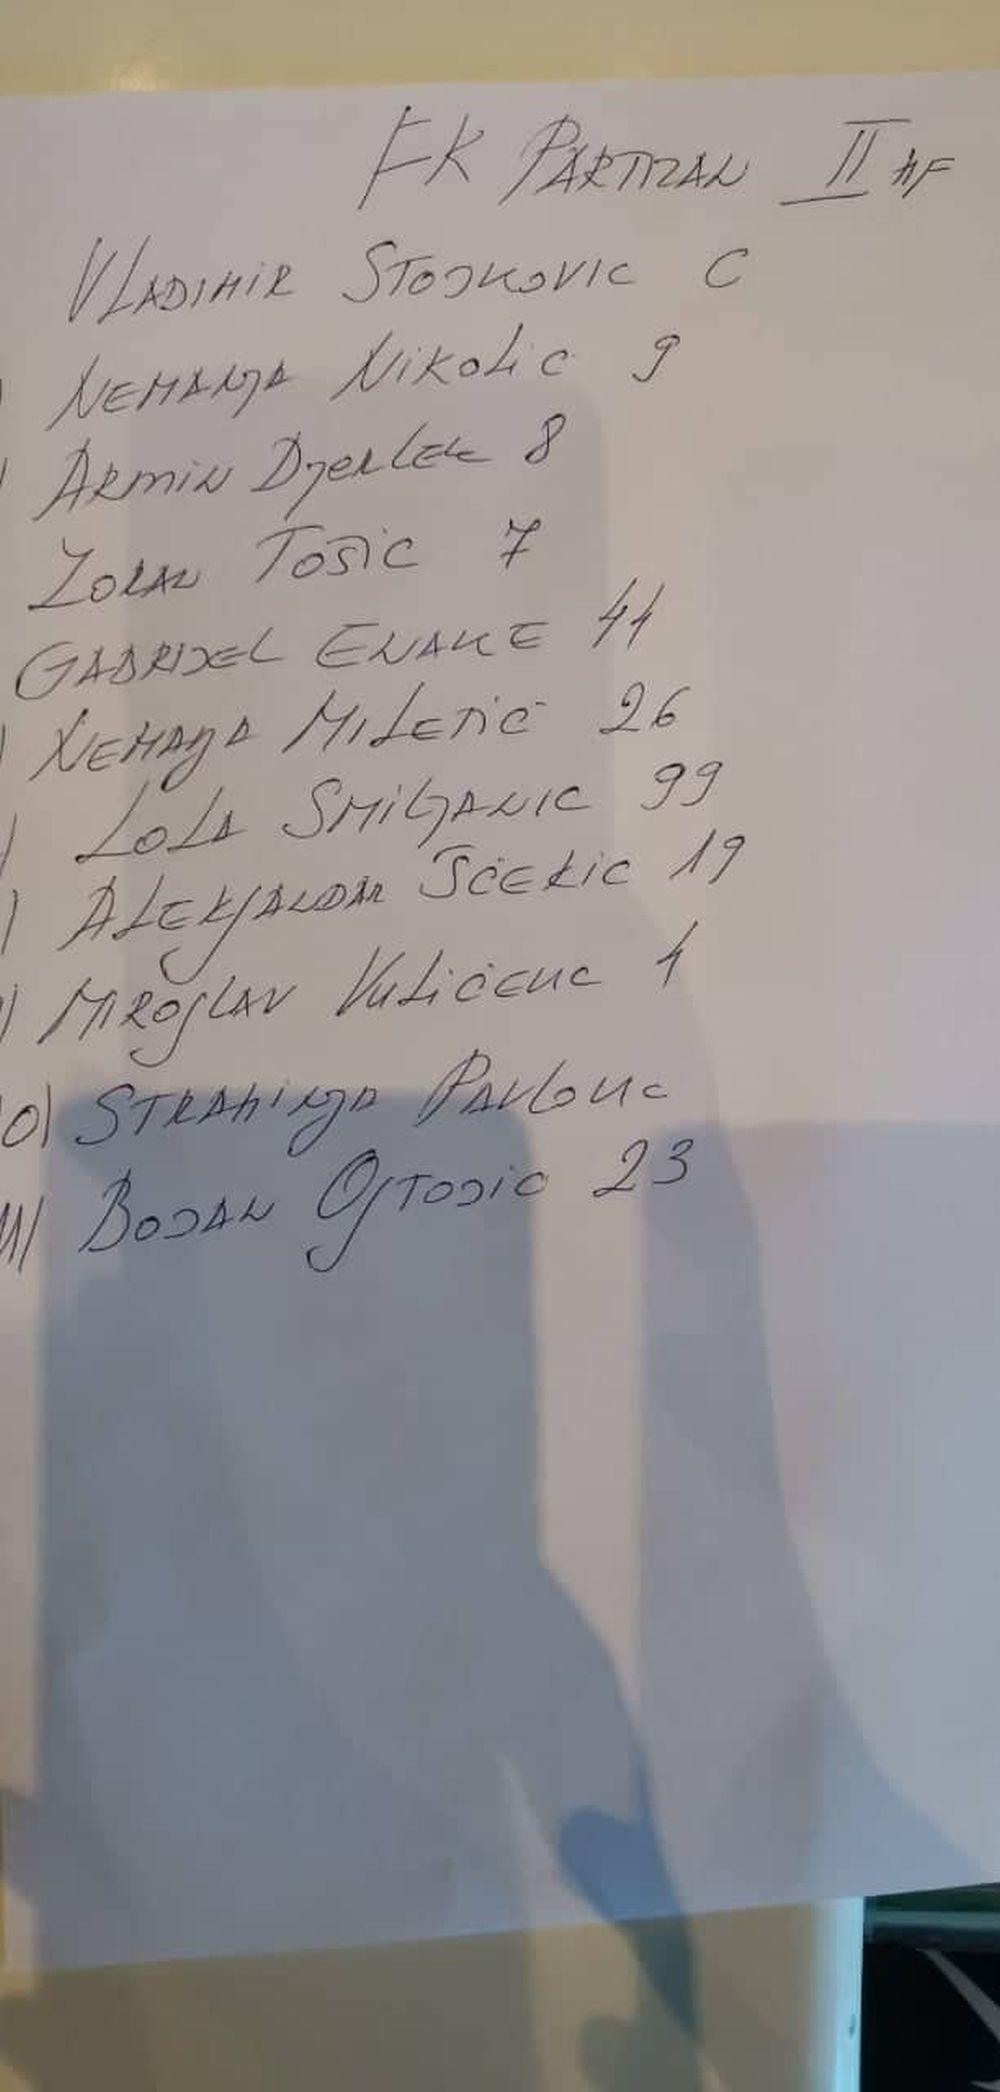 FK PARTIZAN II HF
VLADIMIR STOJKOVIC C
) NEMANJA NIKOLIC 9
) ARMIN DJERLEK 8
ZORAN TOŠIC 7
GABRIJEL ENAKE 44
) NEMANJA MILETIĆ 26
) LOLA SMILJANIC 99
) ALEKSANDAR ŠĆEKIC 19
) MIROSLAV VULIĆEVIC 4
10) STRAHINJA PAVLOVIC
11) BOJAN OSTOJIC 23